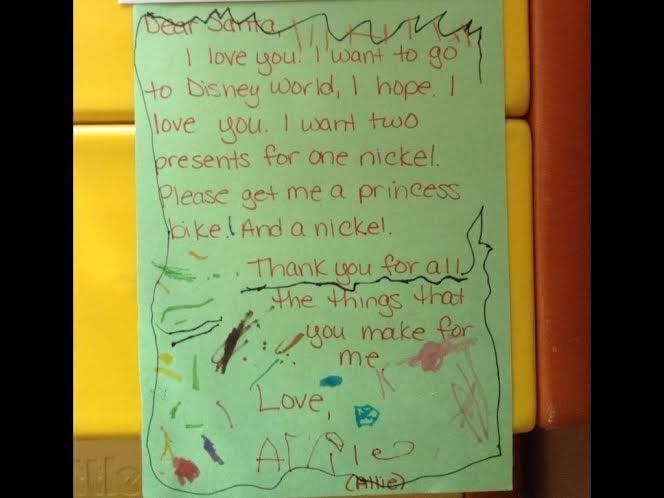 Dear Santa,
I love you. I want to go
to Disney World, I hope. I
love you. I want two
presents for one nickel.
Please get me a princess
bike! And a nickel.
Thank you for all
the things that
you make for
me.
Love,
Allie
(Allie)